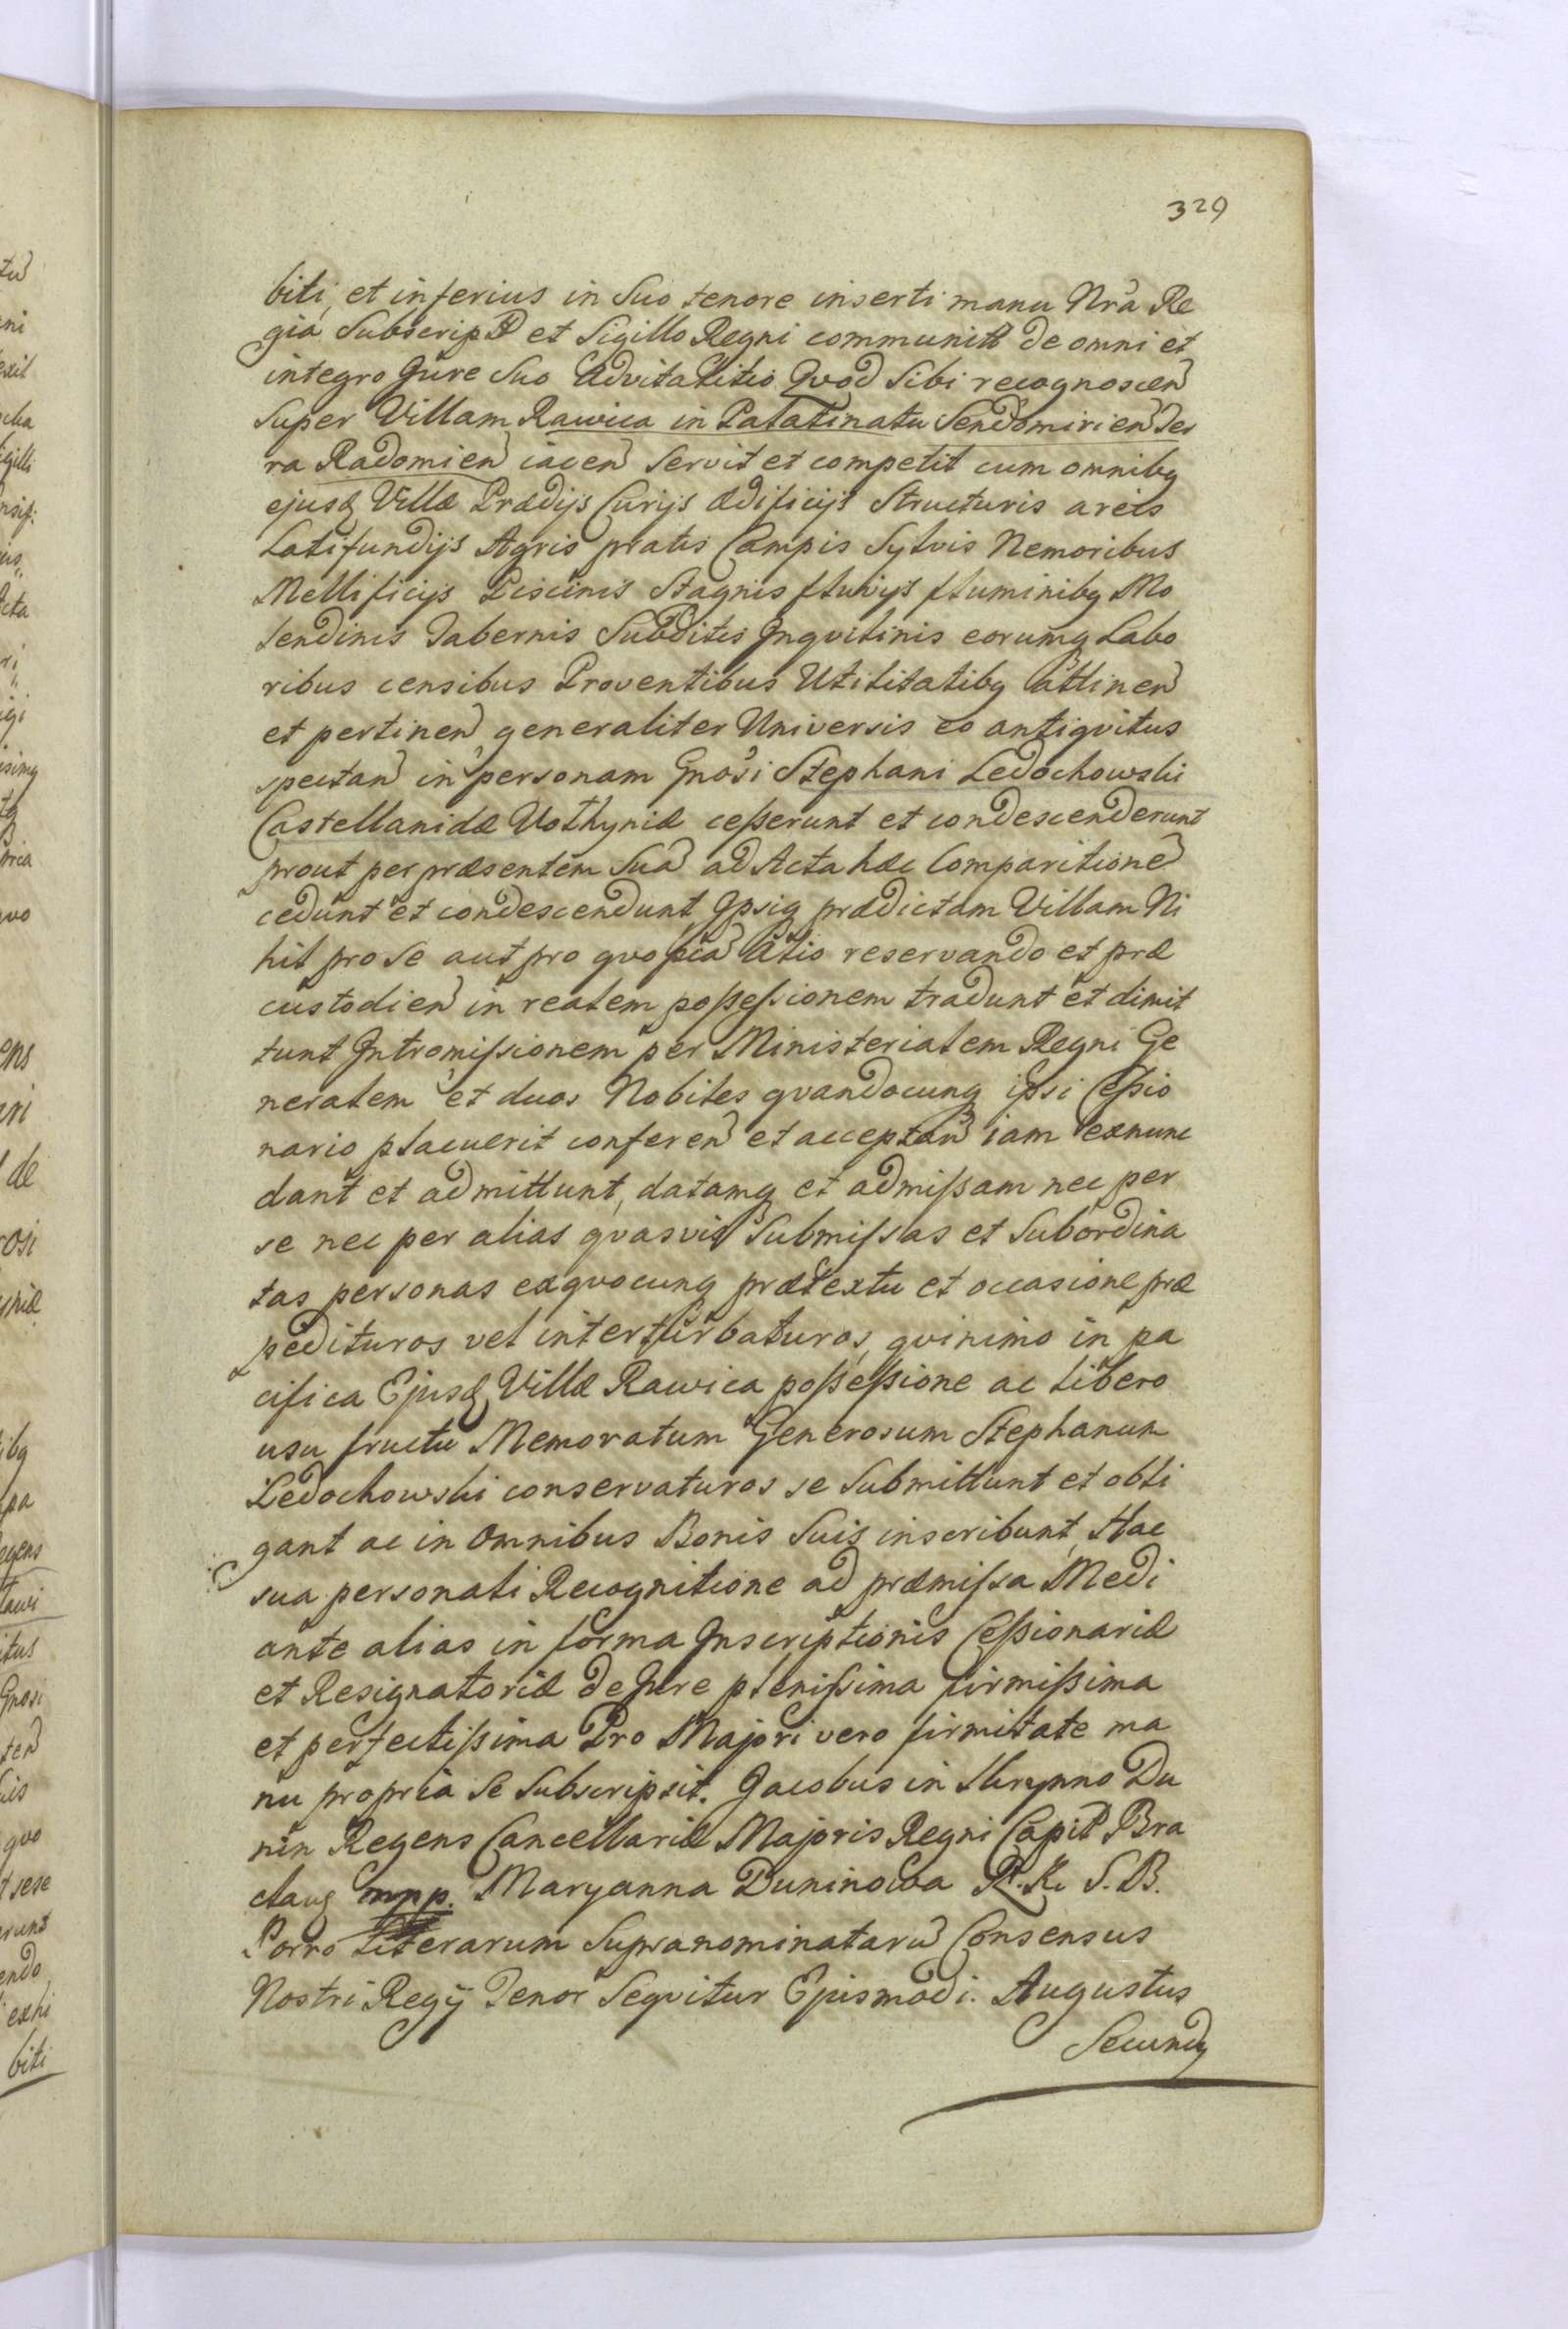 329
biti, et inferius in Suo tenore inserti manu Nrã Re
gia Subscript et Sigillo Regni communitt de omni et
integro Jure Suo Advitalitio Qvod Sibi recognoscen
Super Villam Rawica in Palatinatu Sendomirien Ter
ra Radomien iacen Servit et competit cum omnibq
ejusq Villæ Prædijs Curijs ædificijs Structuris areis
Latifundijs Agris pratis Campis Sylvis Nemoribus
Mellificijs Piscinis Stagnis fluvijs fluminibq Mo
lendinis Tabernis Subditis Inqvilinis eorumq Labo
ribus censibus Proventibus Utilitatibq attinen
et pertinen generaliter Universis eo antiqvitus
spectan in personam Gnosi Stephani Ledochowski
Castellanidæ Volhyniæ cesserunt et condescenderunt
prout per præsentem Suã ad Acta hæc Comparitionẽ
cedunt et condescendunt Ipsiq prædictam Villam Ni
hil pro se aut pro qvopiã alio reservando et præ
custodien in realem possessionem tradunt et dimit
tunt Intromissionem per Ministerialem Regni Ge
neralem et duos Nobiles qvandocunq ipsi Cessio
nario placuerit conferen et acceptan iam exnunc
dant et admittunt, datamq et admissam nec per
se nec per alias qvasvis Submissas et Subordina
tas personas exqvocunq prætextu et occasione præ
pedituros vel interturbaturos, qvinimo in pa
cifica Ejusq Villæ Rawica possessione ac libero
usu fructu Memoratum Generosum Stephanum
Ledochowski conservaturos se Submittunt et obli
gant ac in Omnibus Bonis Suis inscribunt, Hac
sua personali Recognitione ad præmissa Medi
ante alias in forma Inscriptionis Cessionariæ
et Resignatoriæ de Jure plenissima firmissima
et perfectissima Pro Majori vero firmitate ma
nu propria Se Subscripsit. Jacobus in Skrynno Du
nin Regens Cancellariæ Majoris Regni Capit Bra
clauq mpp. Maryanna Duninowa R. K. S. B.
Porro Literarum Supranominatarũ Consensus
Nostri Regij Tenor Seqvitur Ejusmodi. Augustus
Secundq